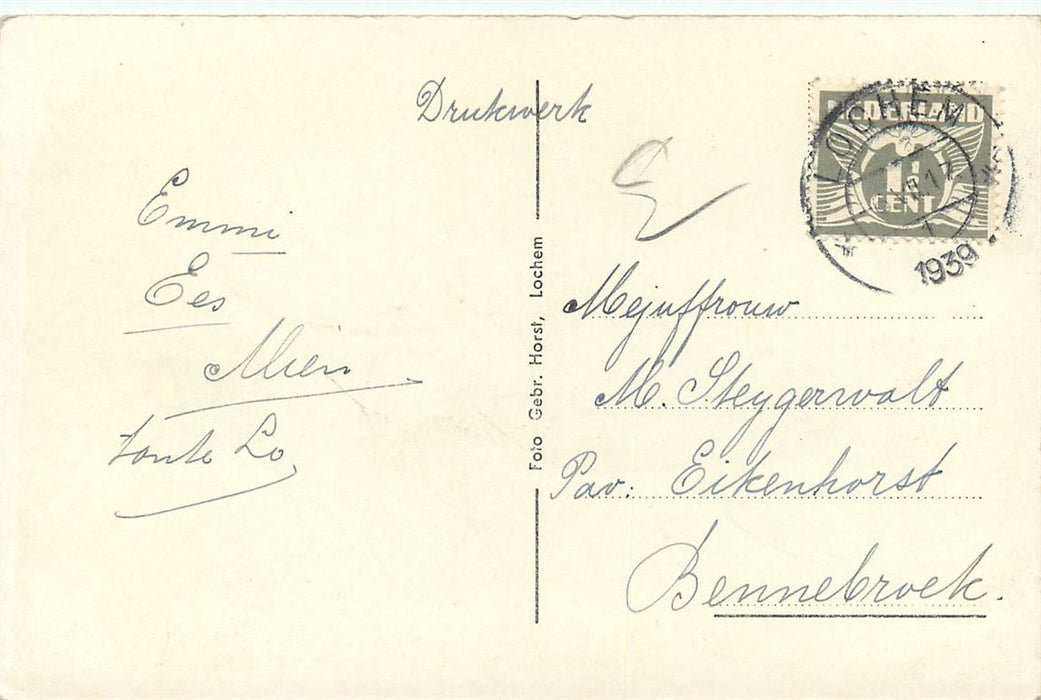 Drukwerk
Emmi
Ees
Mien
tante Lo
Foto Gebr. Horst, Lochem
NEDERLAND
CENT
LOCHEM
1939
E
Mejuffrouw
M. Steygerwalt
Pav: Eikenhorst
Bennebroek.